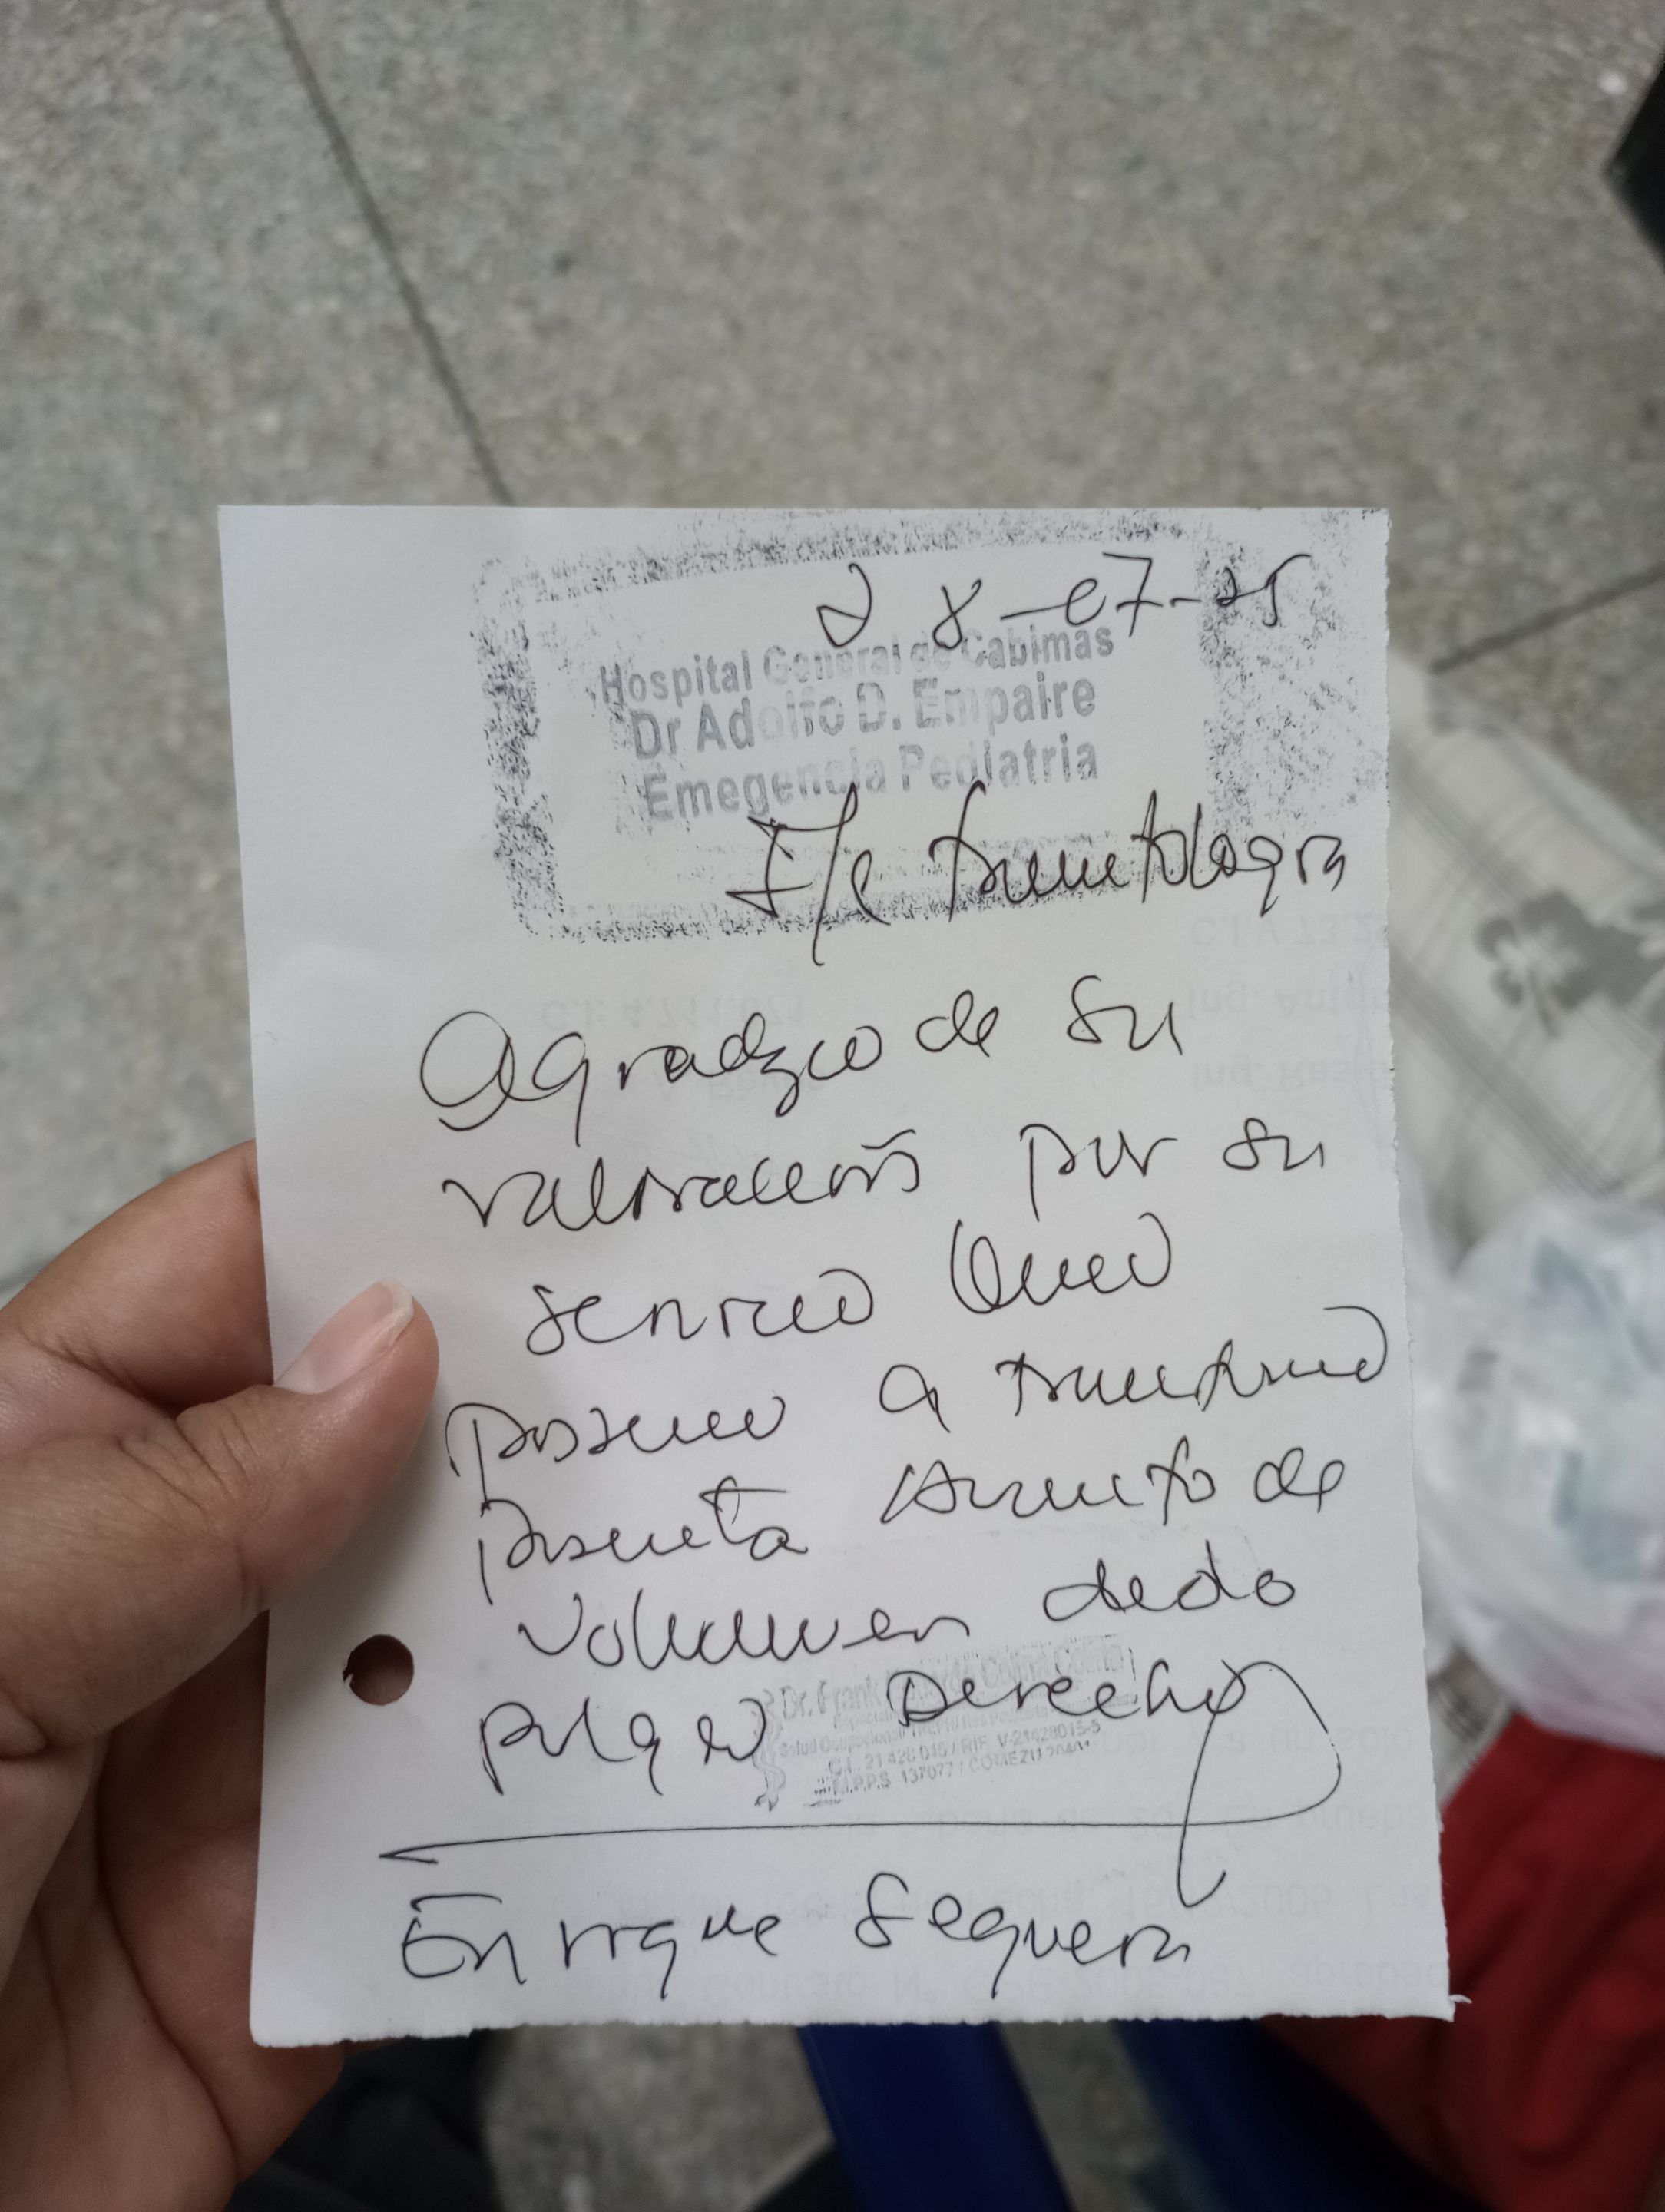 28-07-25
Hospital General de Cabimas
Dr Adolfo D. Empaire
Emegencia Pediatria
I/c traumatologia
Agradezco de su
valoración por su
servicio Quien
posterior a traumatismo
presenta aumento de
volumen dedo
pulgar Derecho
Dr. Frank
C.I. 21 428 015 / RIF V-21428015-5
M.P.P.S 137077 / COMEZU
Enrique Sequera